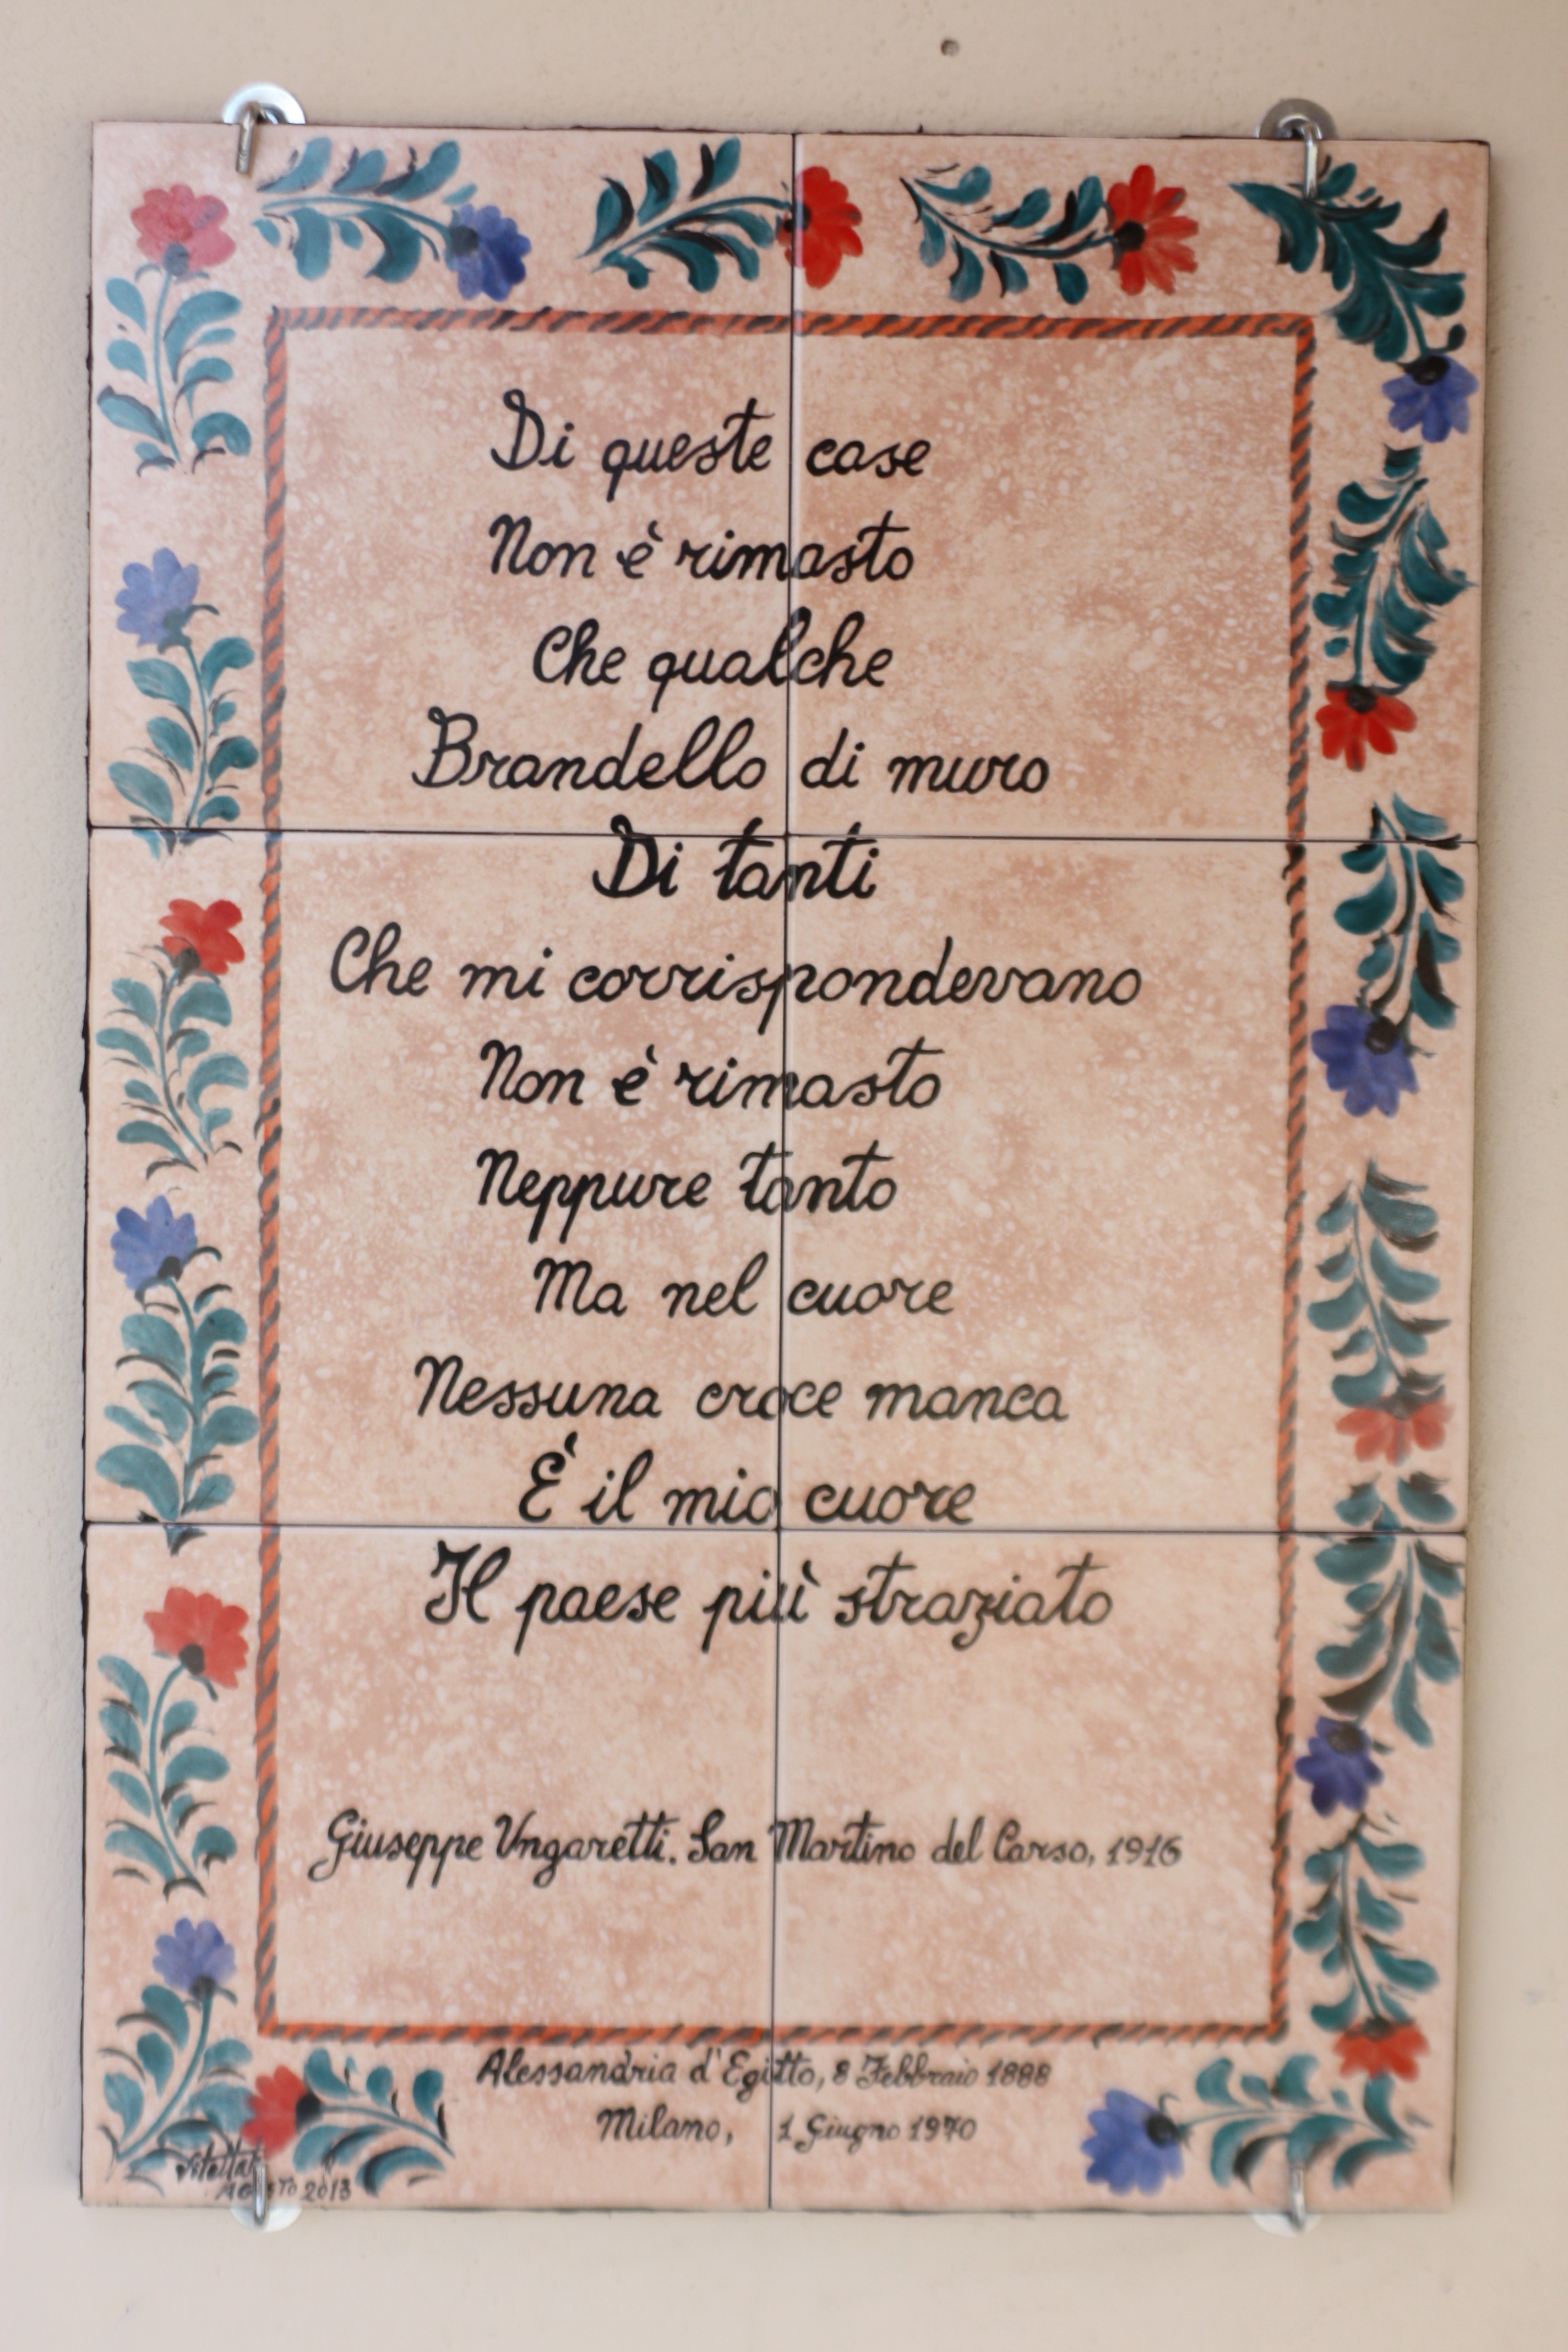 Di queste case
Non è rimasto
Che qualche
Brandello di muro
Di tanti
Che mi corrispondevano
Non è rimasto
Neppure tanto
Ma nel cuore
Nessuna croce manca
È il mio cuore
Il paese più straziato
Giuseppe Ungaretti. San Martino del Carso, 1916
Alessandria d'Egitto, 8 Febbraio 1888
Milano, 1 Giugno 1970
AGOSTO 2013